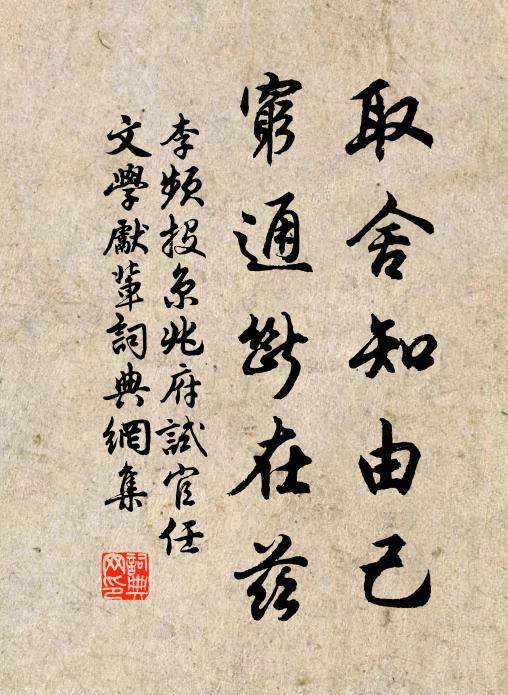 取舍知由己
窮通斷在茲
李頻投京兆府試官任
文學獻輩詞典網集
詞典
网印